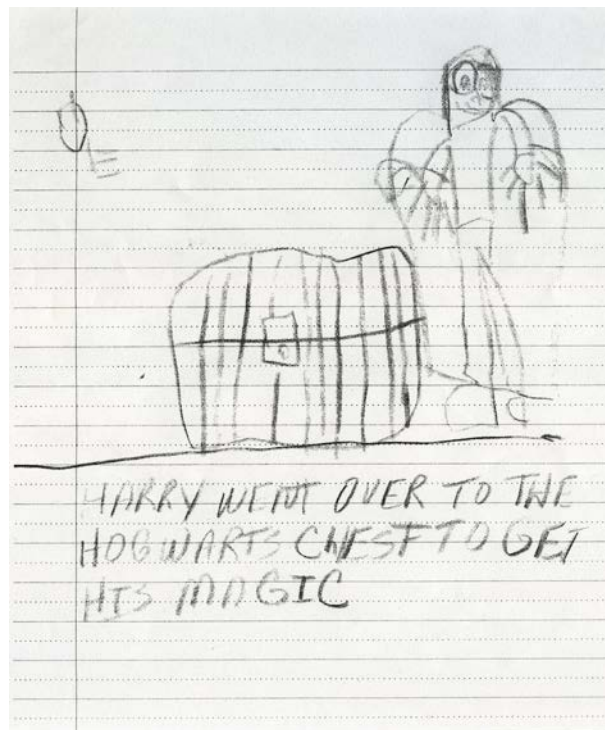 HARRY WENT OVER TO THE
HOGWARTS CHEST TO GET
HIS MAGIC